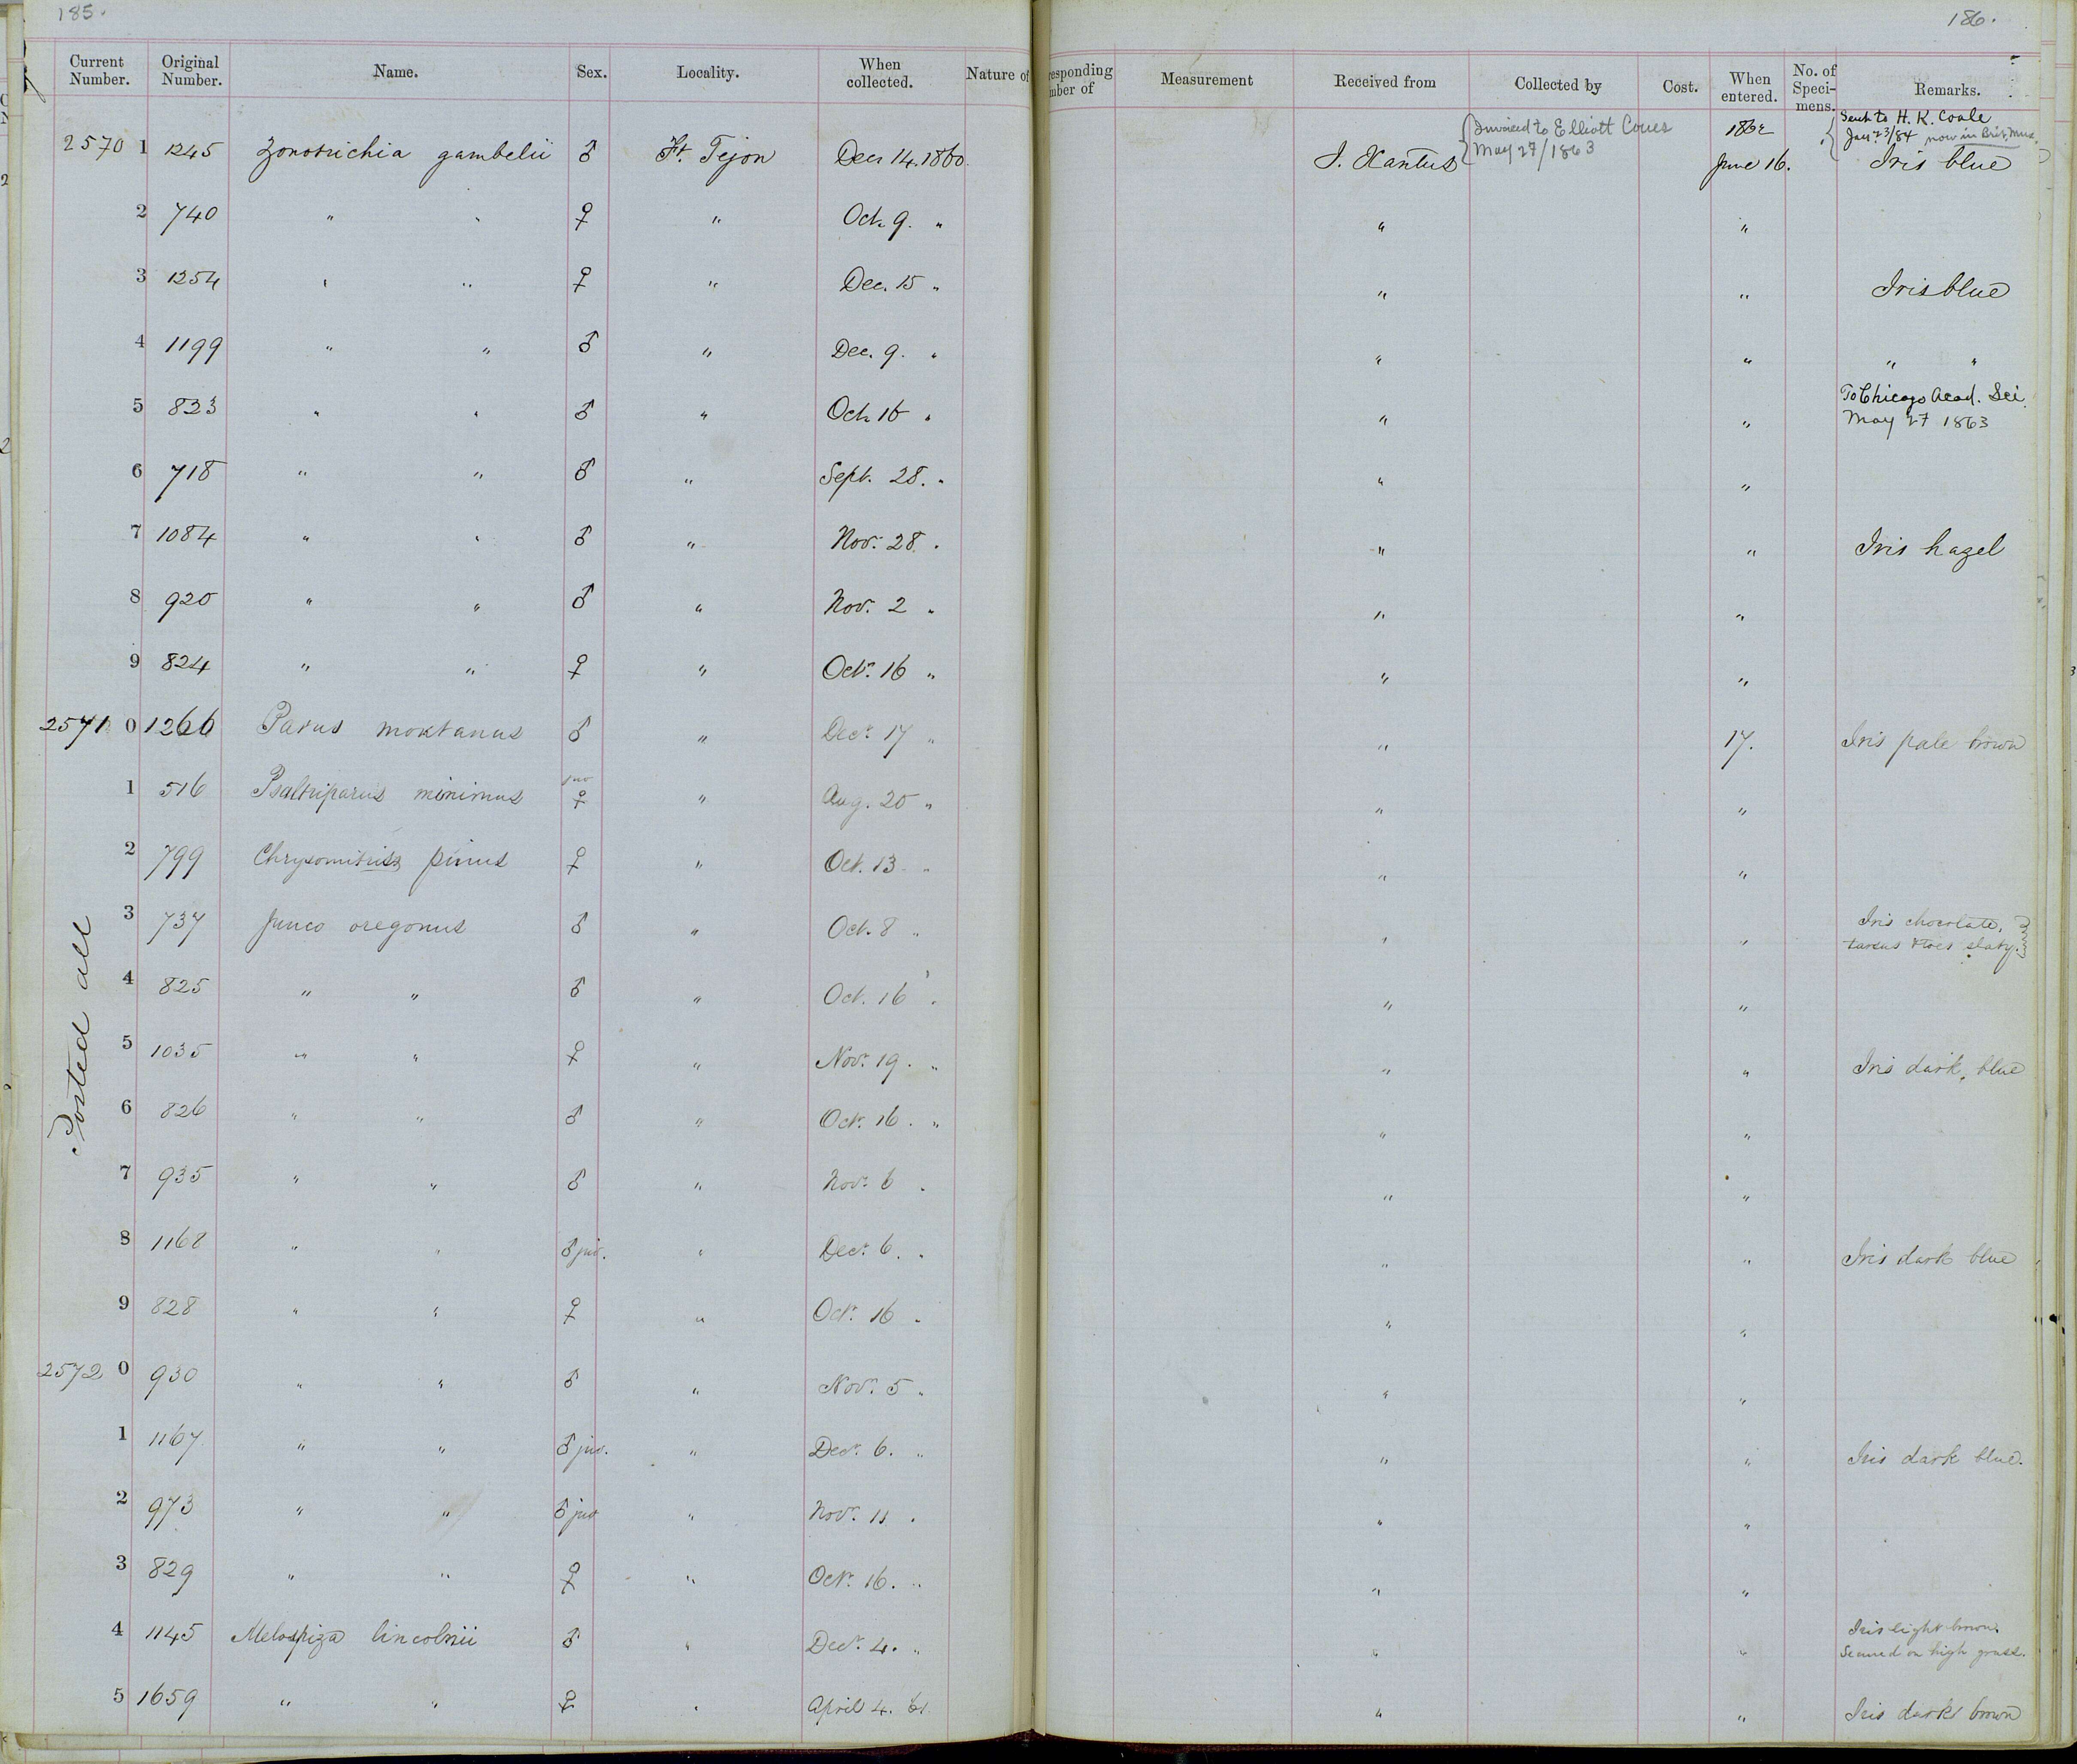 185.
186.
Current Number. Original Number. Name. Sex. Locality. When collected. Nature of
responding mber of Measurement Received from Collected by Cost. When entered. No. of Speci- mens. Remarks.
2570 1 1245 Zonotrichia gambelii ♂ Ft. Tejon Decr 14. 1860 J. Xantus {Invoiced to Elliott Coues May 27/1863 1862 June 16. {Sent to H. K. Coale Jany 23/84 now in Brit. Mus. Iris blue
2 740 " " ♀ " Oct. 9. " " "
3 1254 " " ♀ " Dec. 15 " " " Iris blue
4 1199 " " ♂ " Dec. 9. " " " " "
5 823 " " ♂ " Oct. 16 " " " To Chicago Acad. Sci. May 27 1863
6 718 " " ♂ " Sept. 28. " " "
7 1084 " " ♂ " Nov. 28. " " " Iris hazel
8 920 " " ♂ " Nov. 2 " " "
9 824 " " ♀ " Octr. 16 " " "
2571 0 1266 Parus montanus ♂ " Decr. 17 " " 17. Iris pale brown
1 516 Psaltriparus minimus juv ♀ " Aug. 20 " " "
2 799 Chrysomitris pinus ♀ " Oct. 13. " " "
3 737 Junco oregonus ♂ " Oct. 8 " " " Iris chocolate, tarsus & toes slaty.
4 825 " " ♂ " Oct. 16 " " "
5 1035 " " ♀ " Novr. 19. " " " Iris dark, blue
6 826 " " ♂ " Octr. 16. " " "
7 935 " " ♂ " Novr. 6 " " "
8 1168 " " ♂ juv. " Decr. 6. " " " Iris dark blue
9 828 " " ♀ " Octr. 16 " " "
2572 0 930 " " ♂ " Novr. 5 " " "
1 1167 " " ♂ juv. " Decr. 6. " " " Iris dark blue.
2 973 " " ♂ juv " Novr. 11 " " "
3 829 " " ♀ " Octr. 16. " " "
4 1145 Melospiza lincolnii ♂ " Decr. 4. " " " Iris light brown. Secured on high grass.
5 1659 " " ♀ " April 4. 61. " " Iris dark brown
Posted all